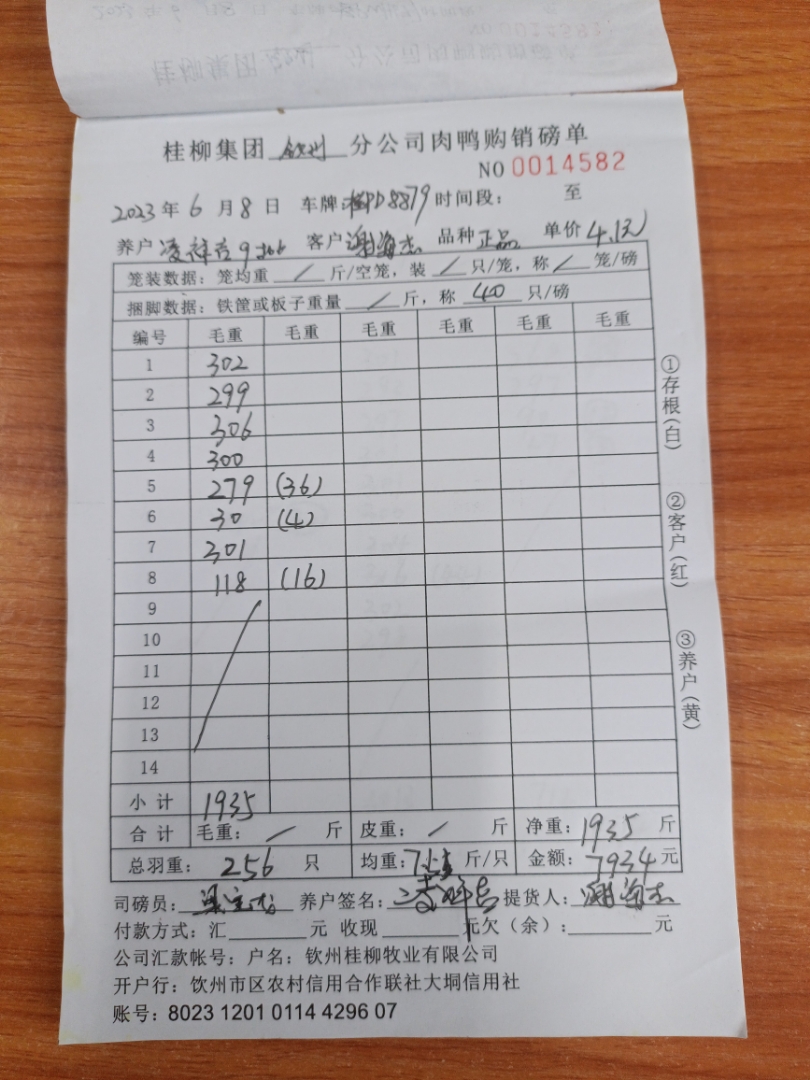 桂柳集团 钦州 分公司肉鸭购销磅单
NO 0014582
2023年 6 月 8 日 车牌:桂PD8879 时间段: 至
养户 客户 谢海杰 品种 正品 单价 4.1元
笼装数据: 笼均重 / 斤/空笼, 装 / 只/笼, 称 / 笼/磅
捆脚数据: 铁筐或板子重量 / 斤, 称 40 只/磅
编号 毛重 毛重 毛重 毛重 毛重 毛重
1 302
2 299
3 306
4 300
5 279 (36)
6 30 (4)
7 301
8 118 (16)
9
10
11
12
13
14
小计 1935
合计 毛重: / 斤 皮重: / 斤 净重: 1935 斤
总羽重: 256 只 均重: 斤/只 金额: 7934 元
司磅员: 养户签名: 提货人: 谢海杰
付款方式: 汇 元 收现 元欠(余): 元
公司汇款帐号: 户名: 钦州桂柳牧业有限公司
开户行: 钦州市区农村信用合作联社大垌信用社
账号: 8023 1201 0114 4296 07
①存根(白)
②客户(红)
③养户(黄)